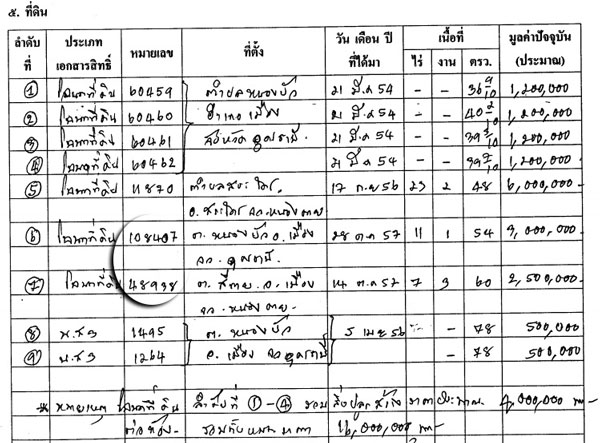 ๕. ที่ดิน
ลำดับที่ ประเภทเอกสารสิทธิ์ หมายเลข ที่ตั้ง วัน เดือน ปี ที่ได้มา เนื้อที่ ไร่ งาน ตรว. มูลค่าปัจจุบัน (ประมาณ)
① โฉนดที่ดิน 60459 ตำบลหนองบัว 21 มี.ค 54 - - 1,200,000
② โฉนดที่ดิน 60460 อำเภอเมือง 21 มี.ค 54 - - 1,200,000
③ โฉนดที่ดิน 60461 จังหวัดอุดรธานี 21 มี.ค 54 - - 1,200,000
④ โฉนดที่ดิน 60462 21 มี.ค 54 - - 1,200,000
⑤ โฉนดที่ดิน 11870 ตำบลสระใคร 17 ก.ย 56 23 2 48 6,000,000
อ. สระใคร จว. หนองคาย
⑥ โฉนดที่ดิน 108407 ต. หนองบัว อ. เมือง 28 ต.ค 57 11 1 54 3,000,000
จว. อุดรธานี
⑦ โฉนดที่ดิน 48938 ต. อ. เมือง 14 ต.ค 57 7 3 60 2,500,000
จว. หนองคาย
⑧ น.ส 3 1495 ต. หนองบัว 5 เมย 56 - 78 500,000
⑨ น.ส 3 1264 อ. เมือง จว อุดรธานี - 78 500,000
* หมายเหตุ โฉนดที่ดิน ลำดับที่ ①-④ รวม สิ่งปลูกสร้าง ราคาประมาณ 4,000,000
รวมทั้งหมด 16,000,000